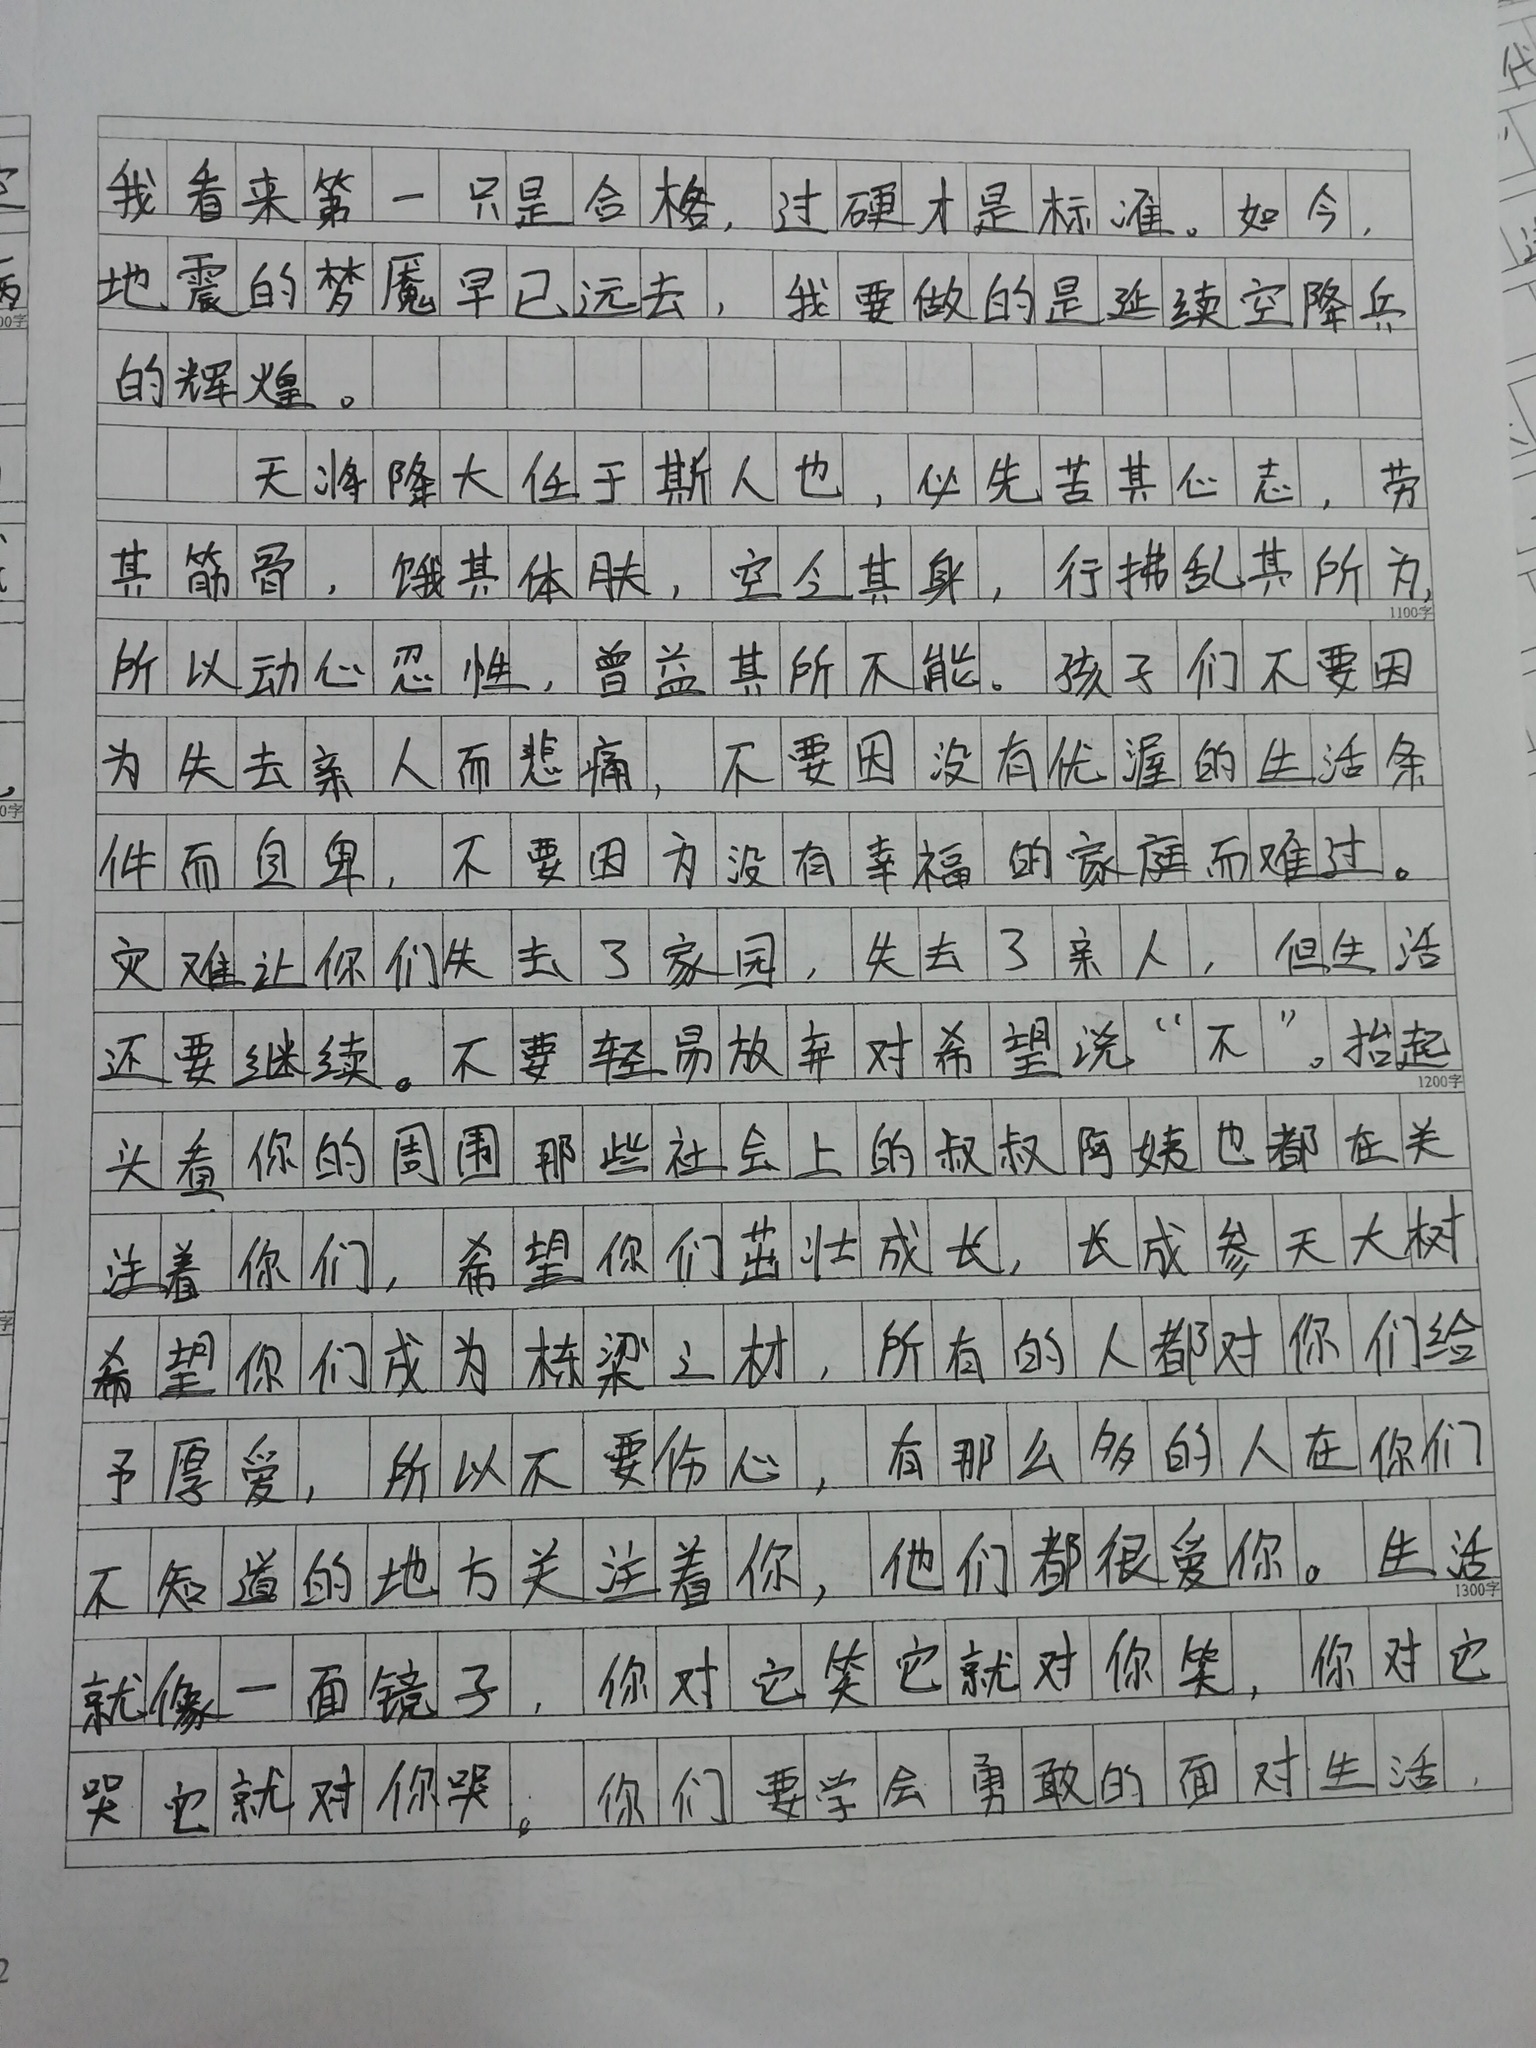 我看来第一只是合格，过硬才是标准。如今，
地震的梦魇早已远去，我要做的是延续空降兵
的辉煌。
天将降大任于斯人也，必先苦其心志，劳
其筋骨，饿其体肤，空令其身，行拂乱其所为，
1100字
所以动心忍性，曾益其所不能。孩子们不要因
为失去亲人而悲痛，不要因没有优渥的生活条
件而自卑，不要因为没有幸福的家庭而难过。
灾难让你们失去了家园，失去了亲人，但生活
还要继续。不要轻易放弃对希望说“不”。抬起
1200字
头看你的周围那些社会上的叔叔阿姨也都在关
注着你们，希望你们茁壮成长，长成参天大树
希望你们成为栋梁之材，所有的人都对你们给
予厚爱，所以不要伤心，有那么多的人在你们
不知道的地方关注着你，他们都很爱你。生活
1300字
就像一面镜子，你对它笑它就对你笑，你对它
哭它就对你哭。你们要学会勇敢的面对生活，
2